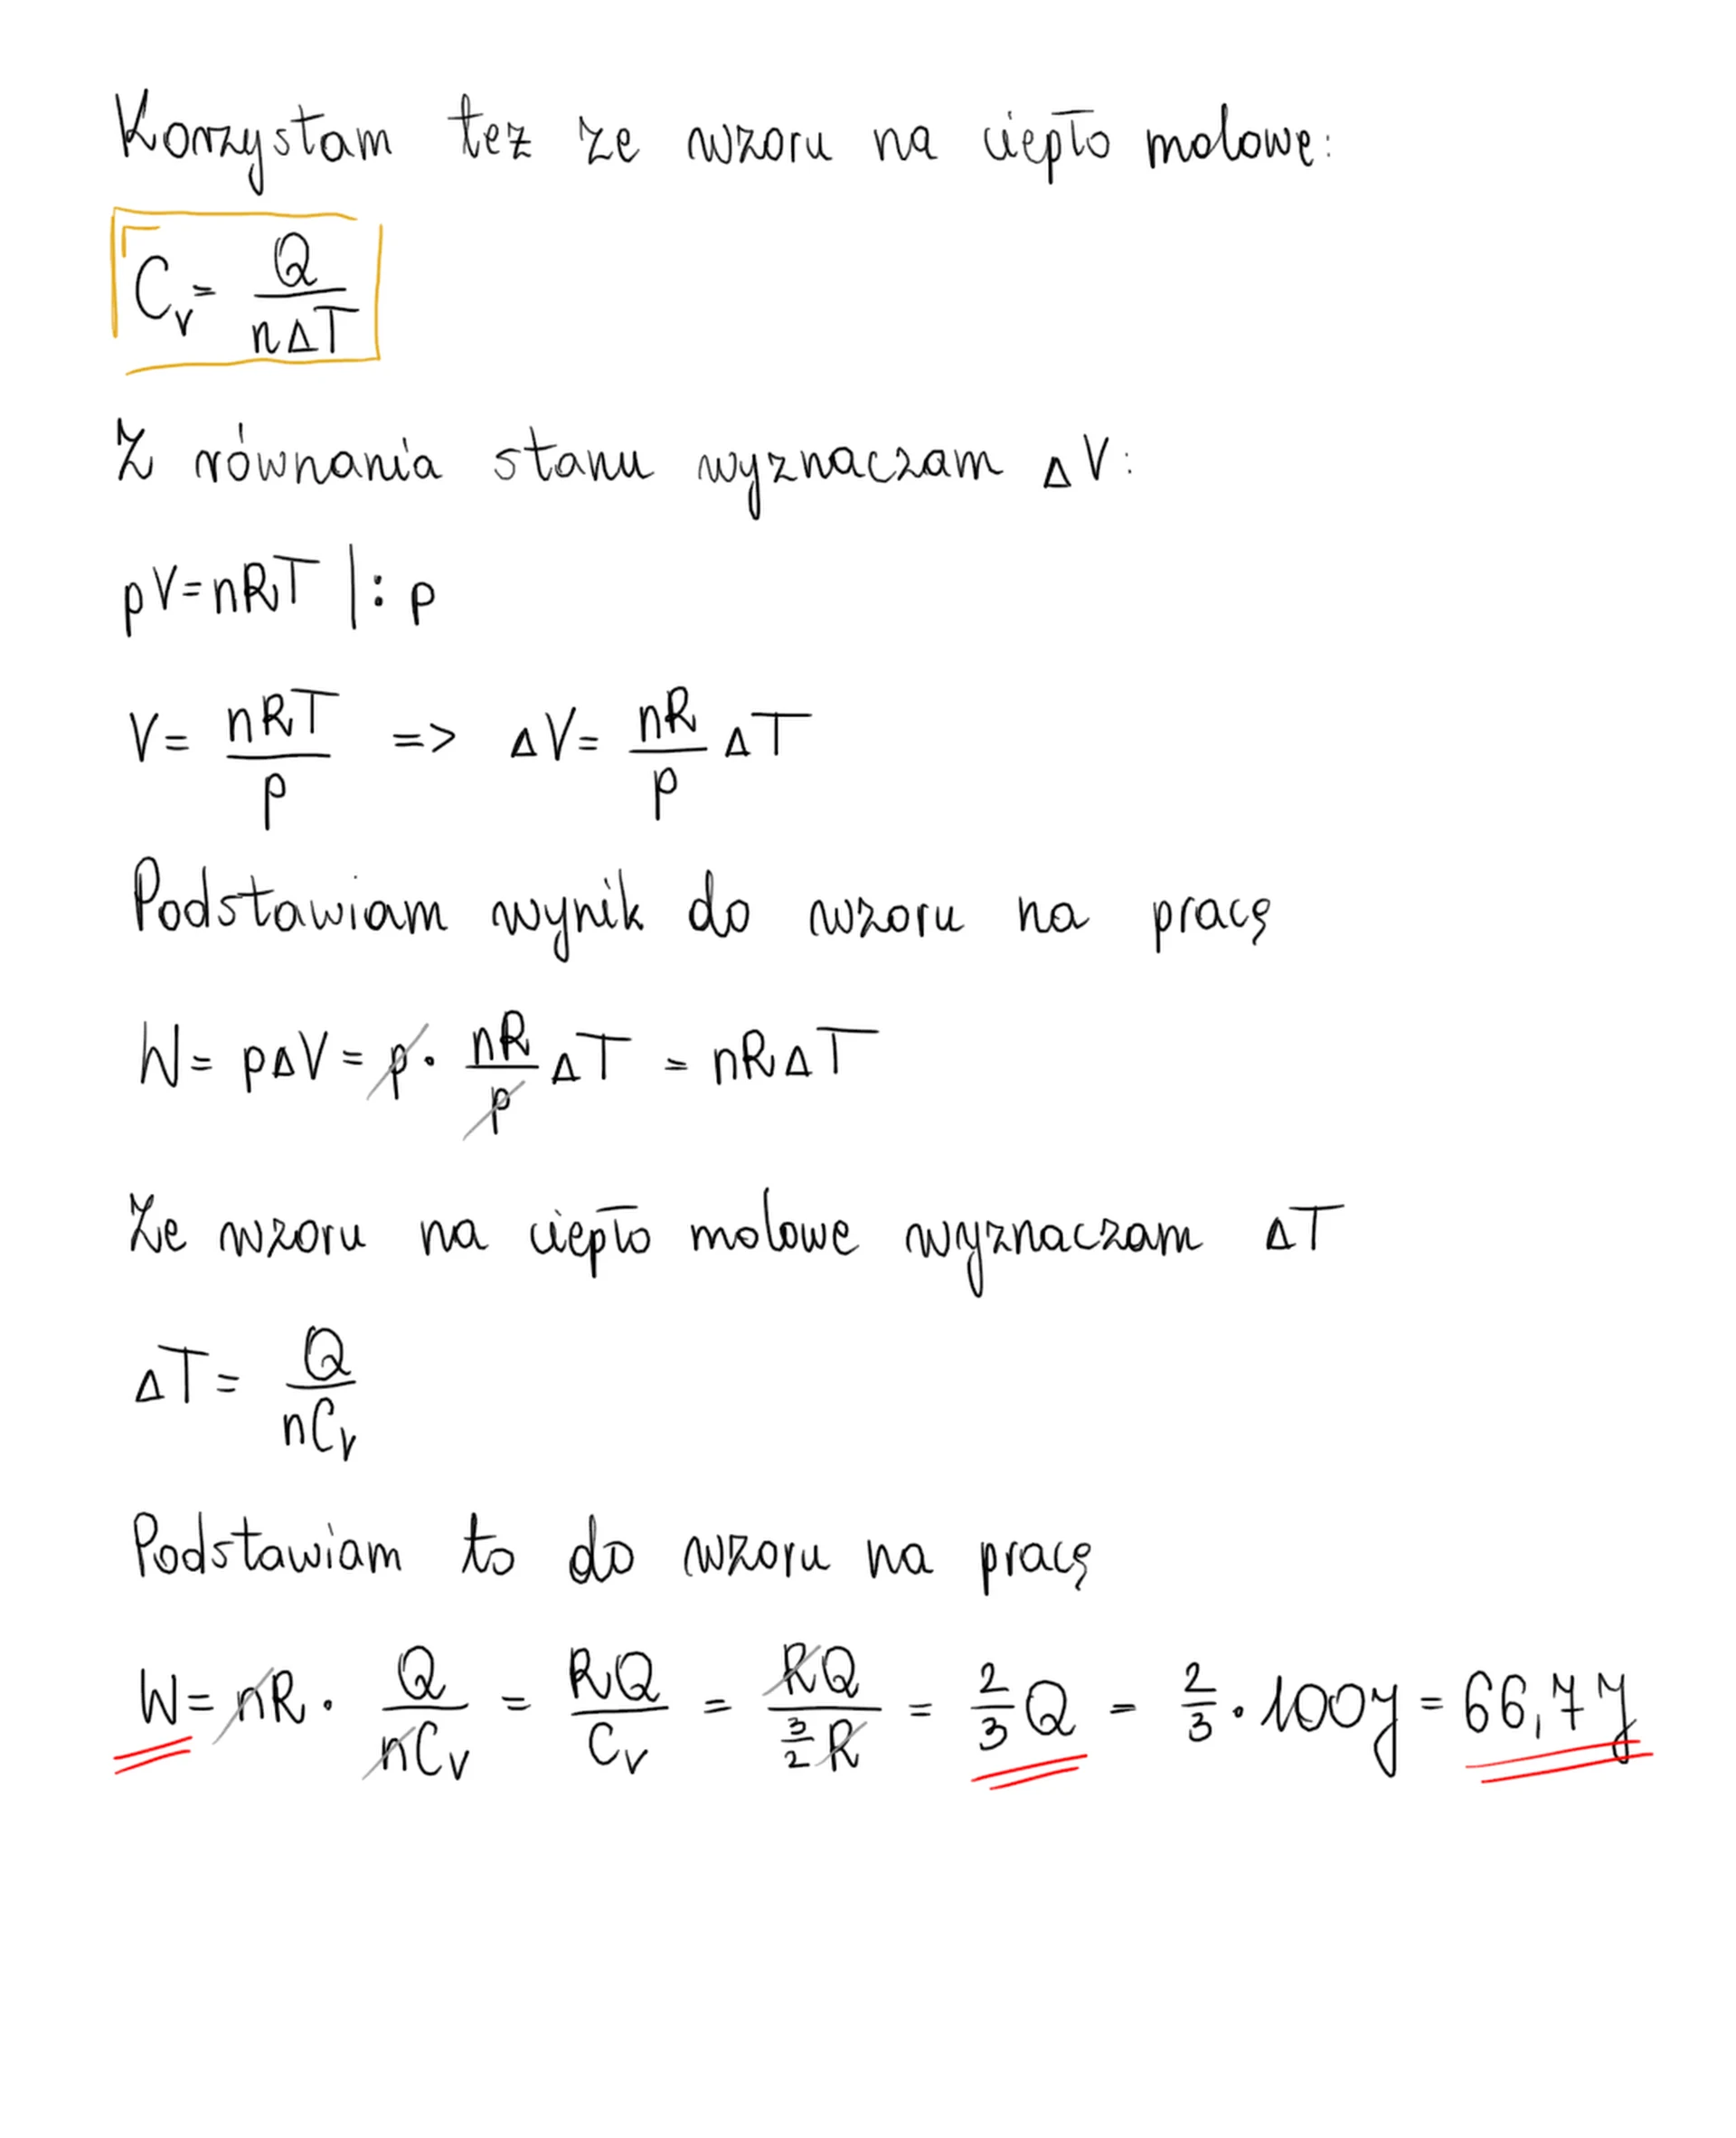 Korzystam też ze wzoru na ciepło molowe:
C_v = Q / nΔT
Z równania stanu wyznaczam ΔV:
pV = nRT |: p
V = nRT / p => ΔV = nR / p ΔT
Podstawiam wynik do wzoru na pracę
W = pΔV = p · nR / p ΔT = nRΔT
Ze wzoru na ciepło molowe wyznaczam ΔT
ΔT = Q / nC_v
Podstawiam to do wzoru na pracę
W = nR · Q / nC_v = RQ / C_v = RQ / 3/2 R = 2/3 Q = 2/3 · 100J = 66,7J